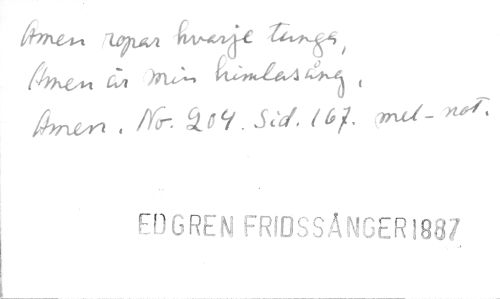 Amen ropar hvarje tunga,
Amen är min himlasång,
Amen. No. 204. Sid. 167. mel-not.
EDGREN FRIDSSÅNGER 1887